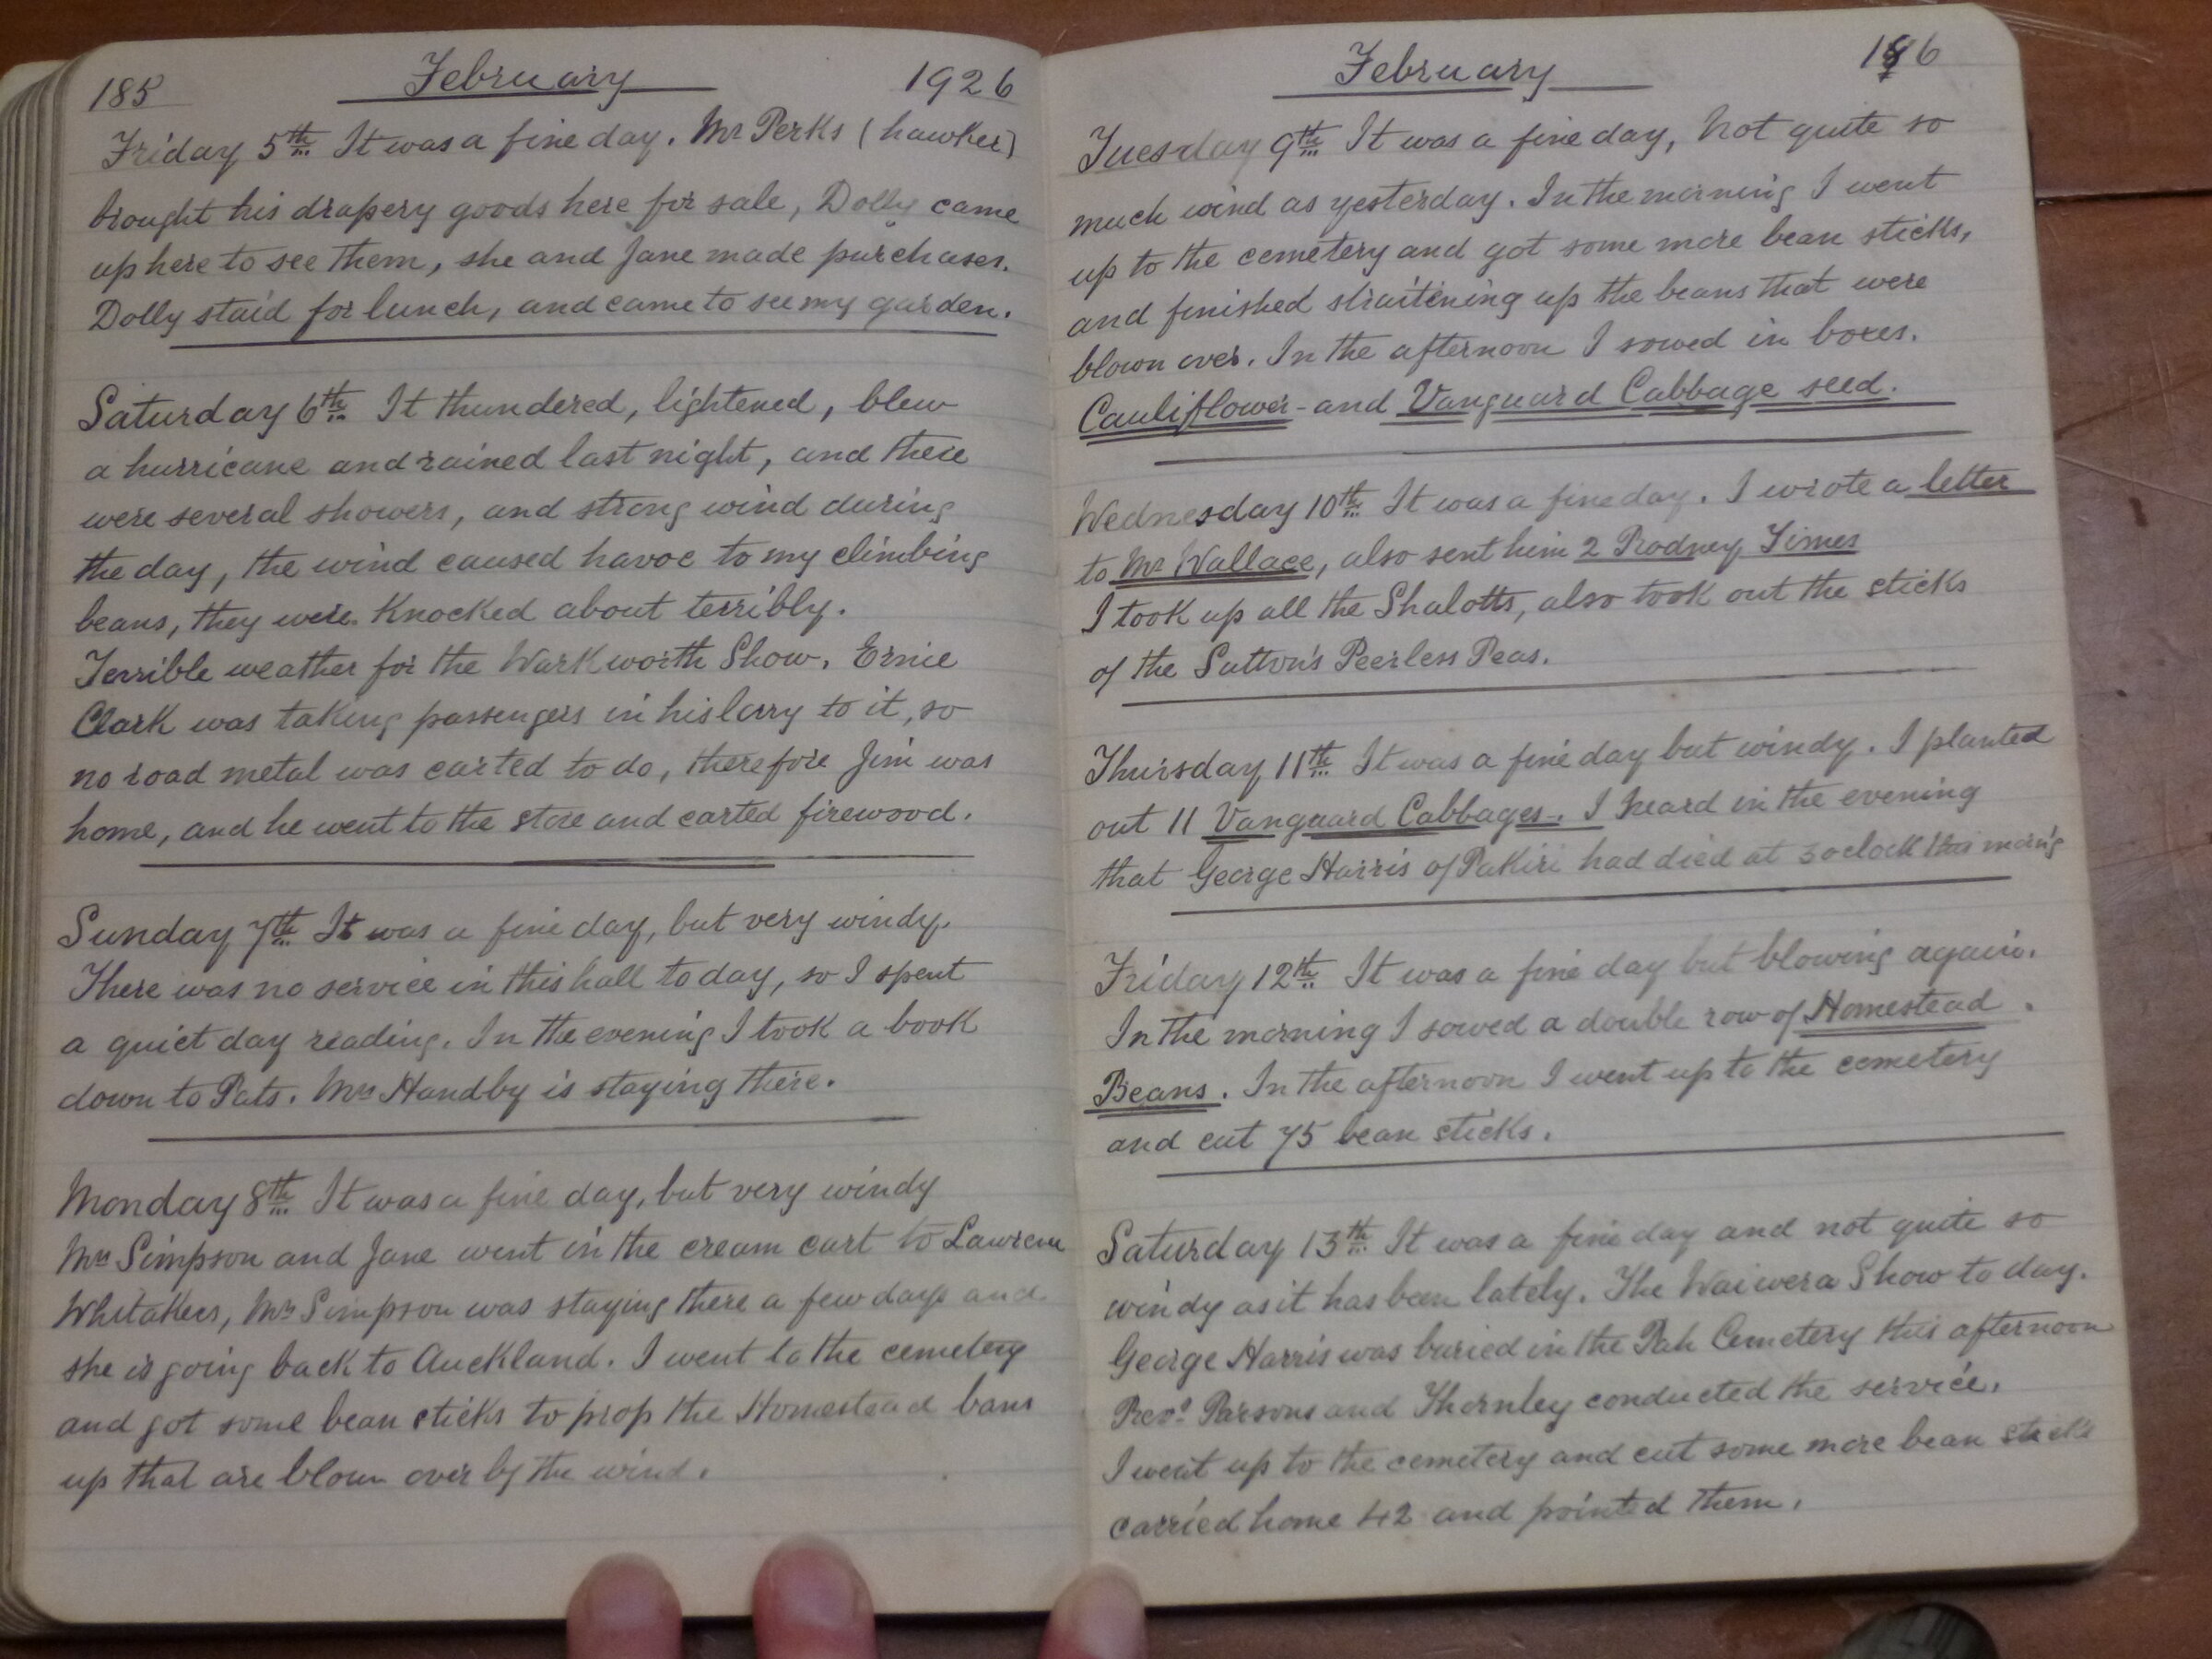 185 February 1926
Friday 5th It was a fine day. Mr Perks (hawker)
brought his drapery goods here for sale, Dolly came
up here to see them, she and Jane made purchases.
Dolly staid for lunch, and came to see my garden.
Saturday 6th It thundered, lightened, blew
a hurricane and rained last night, and there
were several showers, and strong wind during
the day, the wind caused havoc to my climbing
beans, they were knocked about terribly.
Terrible weather for the Warkworth Show. Ernie
Clark was taking passengers in his lorry to it, so
no road metal was carted to do, therefore Jim was
home, and he went to the store and carted firewood.
Sunday 7th It was a fine day, but very windy.
There was no service in this hall to day, so I spent
a quiet day reading. In the evening I took a book
down to Pats. Mrs Handby is staying there.
Monday 8th It was a fine day, but very windy
Mrs Simpson and Jane went in the cream cart to Lawrence
Whitakers, Mrs Simpson was staying there a few days and
she is going back to Auckland. I went to the cemetery
and got some bean sticks to prop the Homestead bans
up that are blown over by the wind.
February 186
Tuesday 9th It was a fine day, not quite so
much wind as yesterday. In the morning I went
up to the cemetery and got some more bean sticks,
and finished straitening up the beans that were
blown over. In the afternoon I sowed in boxes.
Cauliflower - and Vanguard Cabbage seed.
Wednesday 10th It was a fine day. I wrote a letter
to Mr Wallace, also sent him 2 Rodney Times
I took up all the Shalotts, also took out the sticks
of the Sutton's Peerless Peas.
Thursday 11th It was a fine day but windy. I planted
out 11 Vanguard Cabbages. I heard in the evening
that George Harris of Pakiri had died at 3 oclock this morning
Friday 12th It was a fine day but blowing again.
In the morning I sowed a double row of Homestead
Beans. In the afternoon I went up to the cemetery
and cut 75 bean sticks.
Saturday 13th It was a fine day and not quite so
windy as it has been lately. The Waiwera Show to day.
George Harris was buried in the Pah Cemetery this afternoon
Revs Parsons and Thornley conducted the service.
I went up to the cemetery and cut some more bean sticks
carried home 42 and pointed them.